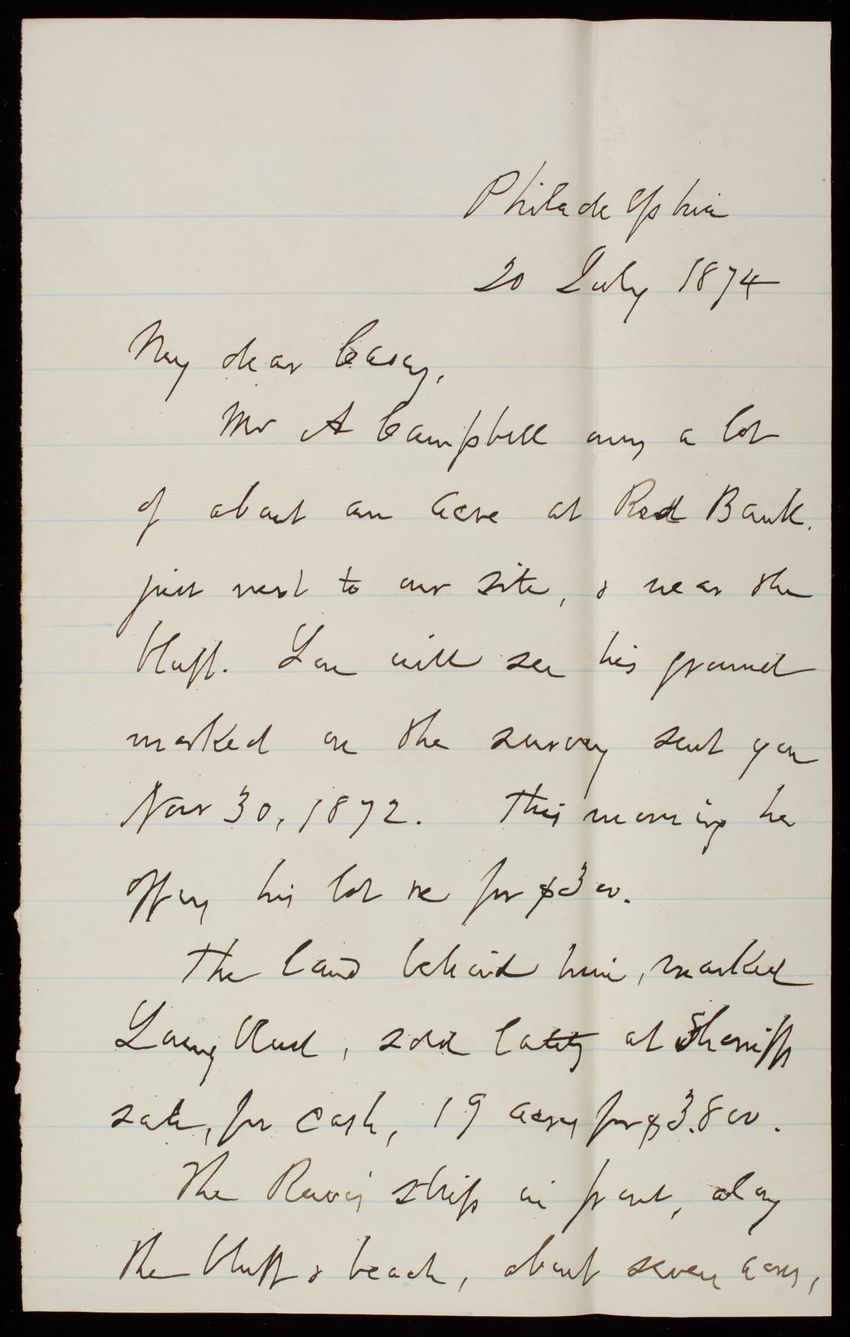 Philadelphia
20 July 1874
My dear Casey,
Mr A Campbell owns a lot
of about an acre at Red Bank,
just next to our site, & near the
bluff. You will see his ground
marked on the survey sent you
Nov 30, 1872. This morning he
offers his lot to me for $300.
The land behind him, marked
Young blud, sold lately at Sheriffs
sale, for cash, 19 acres for $3.800.
The strip in front, along
the bluff & beach, about seven acres,